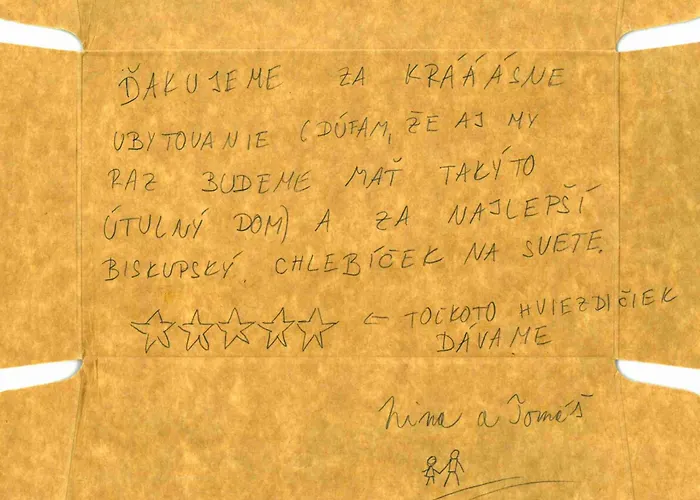 ĎAKUJEME ZA KRÁÁÁSNE
UBYTOVANIE (DÚFAM, ŽE AJ MY
RAZ BUDEME MAŤ TAKÝTO
ÚTULNÝ DOM) A ZA NAJLEPŠÍ
BISKUPSKÝ CHLEBÍČEK NA SVETE.
← TOĽKOTO HVIEZDIČIEK
DÁVAME
Nina a Tomáš